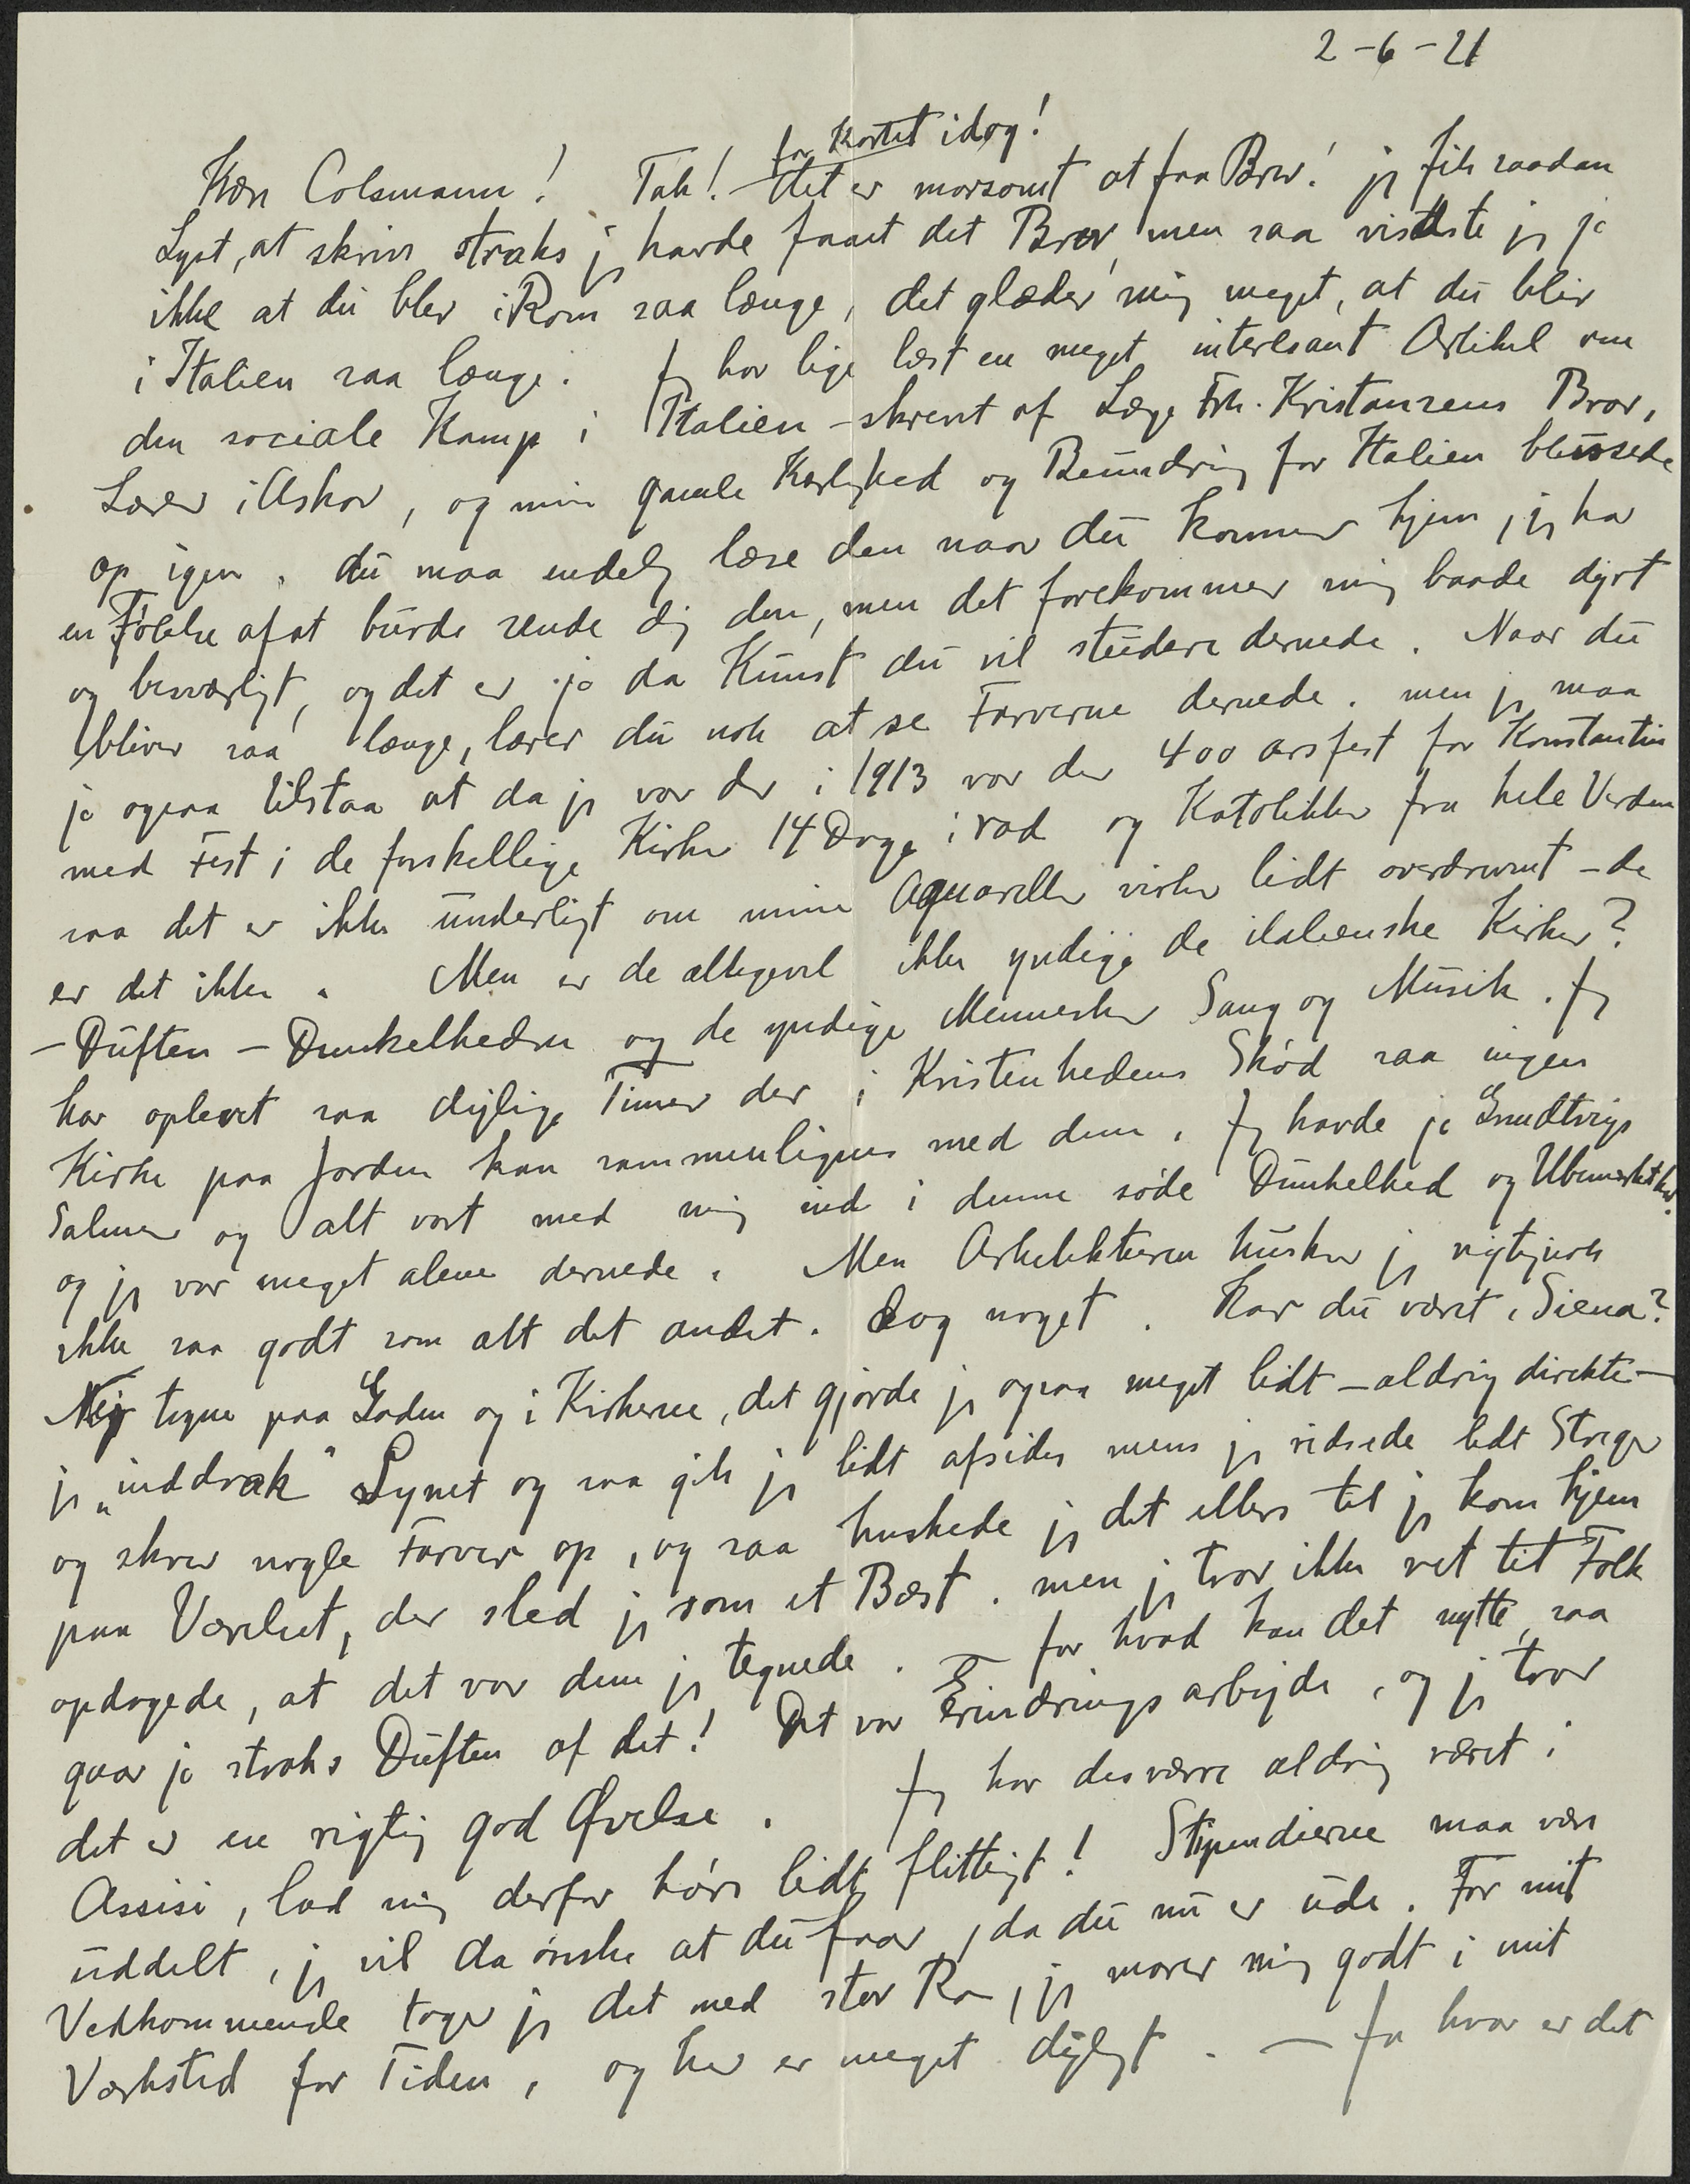 2-6-21
for Kortet idag!
Kære Colsmann! Tak! – det er morsomt at faa Brev! jeg fik saadan
Lyst, at skrive straks jeg havde faaet det Brev, men saa vidste jeg jo
ikke at du blev i Rom saa længe, det glæder mig meget, at du blir
i Italien saa længe. Jeg har lige læst en meget interesant Artikel om
den sociale Kamp i Italien – skrevet af Læge Frk. Kristansens Bror,
Lærer i Askov, og min gamle Kærlighed og Beundring for Italien blussede
op igen, du maa endelig læse den naar du kommer hjem, jeg har
en Følelse af at burde sende dig den, men det forekommer mig baade dyrt
og besværligt, og det er jo da Kunst du vil studere dernede. Naar du
bliver saa længe, lærer du nok at se Farverne dernede. men jeg maa
jo ogsaa tilstaa at da jeg var der i 1913 var der 400 arsfest for Konstantin
med Fest i de forskellige Kirker 14 Dage i rad og Katolikker fra hele Verden
saa det er ikke underligt om mine Aquareller virker lidt overdrevet – de
er det ikke. Men er de alligevel ikke yndige de italienske Kirker?
– Duften – Dunkelheden og de yndige Mennesker Sang og Musik. Jeg
har oplevet saa dejlige Timer der i Kristenhedens Skød saa ingen
Kirke paa Jorden kan sammenlignes med dem. Jeg havde jo Grundtvigs
Salmer og alt vort med mig ind i denne søde Dunkelhed og Ubemærkethed.
og jeg var meget alene dernede. Men Arkitekturen husker jeg rigtignok
ikke saa godt som alt det andet. Dog noget. Har du været i Siena?
Nej tegne paa Gaden og i Kirkerne, det gjorde jeg ogsaa meget lidt – aldrig direkte –
jeg „inddrak“ Synet og saa gik jeg lidt afsides mens jeg ridsede lidt Streger
og skrev nogle Farver op, og saa huskede jeg det ellers til jeg kom hjem
paa Værelset, der sled jeg som et Bæst. men jeg tror ikke ret tit Folk
opdagede, at det var dem jeg tegnede. – for hvad kan det nytte, saa
gaar jo straks Duften af det! Det var Erindringsarbejde, og jeg tror
det er en rigtig god Øvelse. Jeg har desværre aldrig været i
Assisi, lad mig derfor høre lidt flittigt! Stipendierne maa være
uddelt, jeg vil da ønske at du faar, da du nu er ude. For mit
Vedkommende tager jeg det med stor Ro, jeg morer mig godt i mit
Værksted for Tiden, og her er meget dejligt. – Ja hvor er det